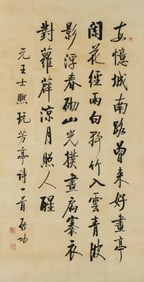 每憶城南路曾来好畫亭
闌花經雨白野竹入雲青波
影浮春砌山光撲畫扃褰衣
對蘿薜涼月照人醒
元王士熙玩芳亭詩一首 启功